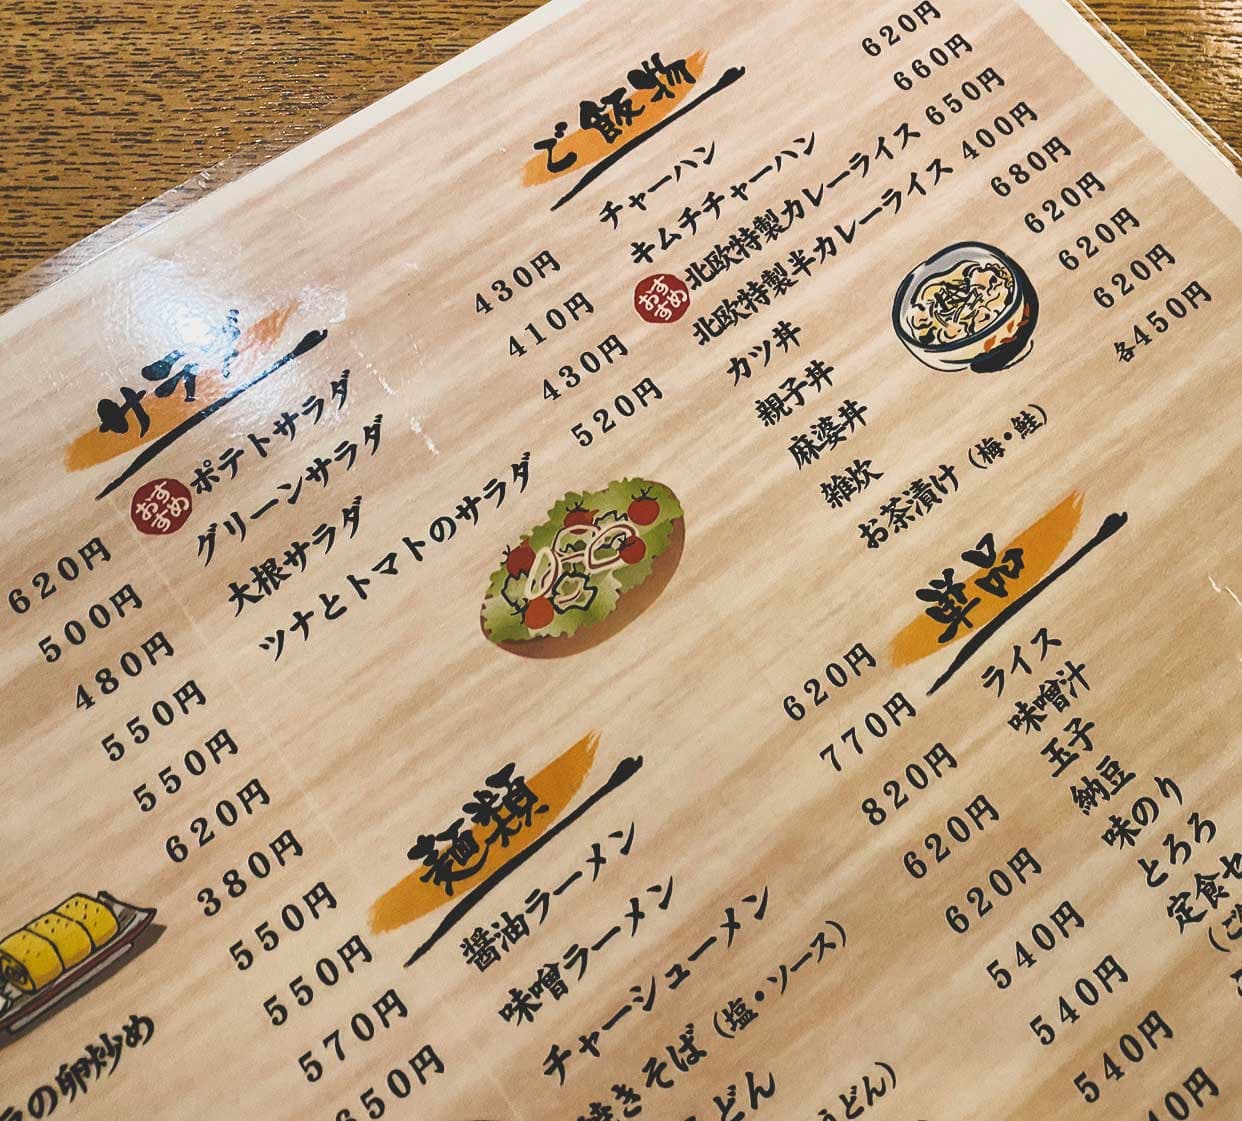 ご飯物
チャーハン 620円
キムチチャーハン 660円
おすすめ 北欧特製カレーライス 650円
北欧特製半カレーライス 400円
カツ丼 680円
親子丼 620円
麻婆丼 620円
雑炊 620円
お茶漬け（梅・鮭） 各450円
サラダ
おすすめ ポテトサラダ 430円
グリーンサラダ 410円
大根サラダ 430円
ツナとトマトのサラダ 520円
620円
500円
480円
550円
550円
620円
380円
の卵炒め 550円
550円
570円
650円
麺類
醤油ラーメン 620円
味噌ラーメン 770円
チャーシューメン 820円
きそば（塩・ソース） 620円
どん 620円
うどん） 540円
540円
540円
40円
単品
ライス
味噌汁
玉子
納豆
味のり
とろろ
定食セ
（ご